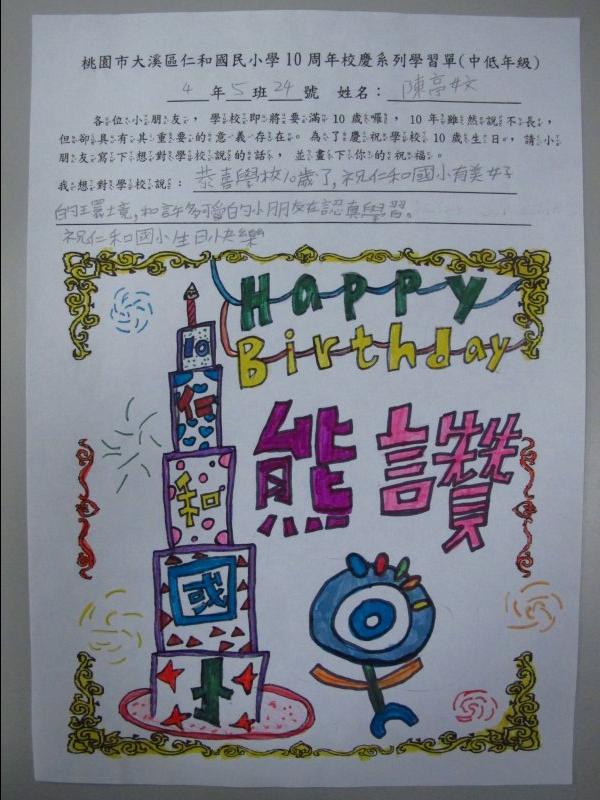 桃園市大溪區仁和國民小學10周年校慶系列學習單(中低年級)
4 年 5 班 24 號 姓名: 陳亭妏
各位小朋友,學校即將要滿10歲囉,10年雖然說不長,
但卻具有其重要的意義存在。為了慶祝學校10歲生日,請小
朋友寫下想對學校說的話,並畫下你的祝福。
我想對學校說: 恭喜學校10歲了,祝仁和國小有美好
的環境,和許多可愛的小朋友在認真學習。
祝仁和國小生日快樂
Happy
Birthday
10
仁
和
國
小
熊讚